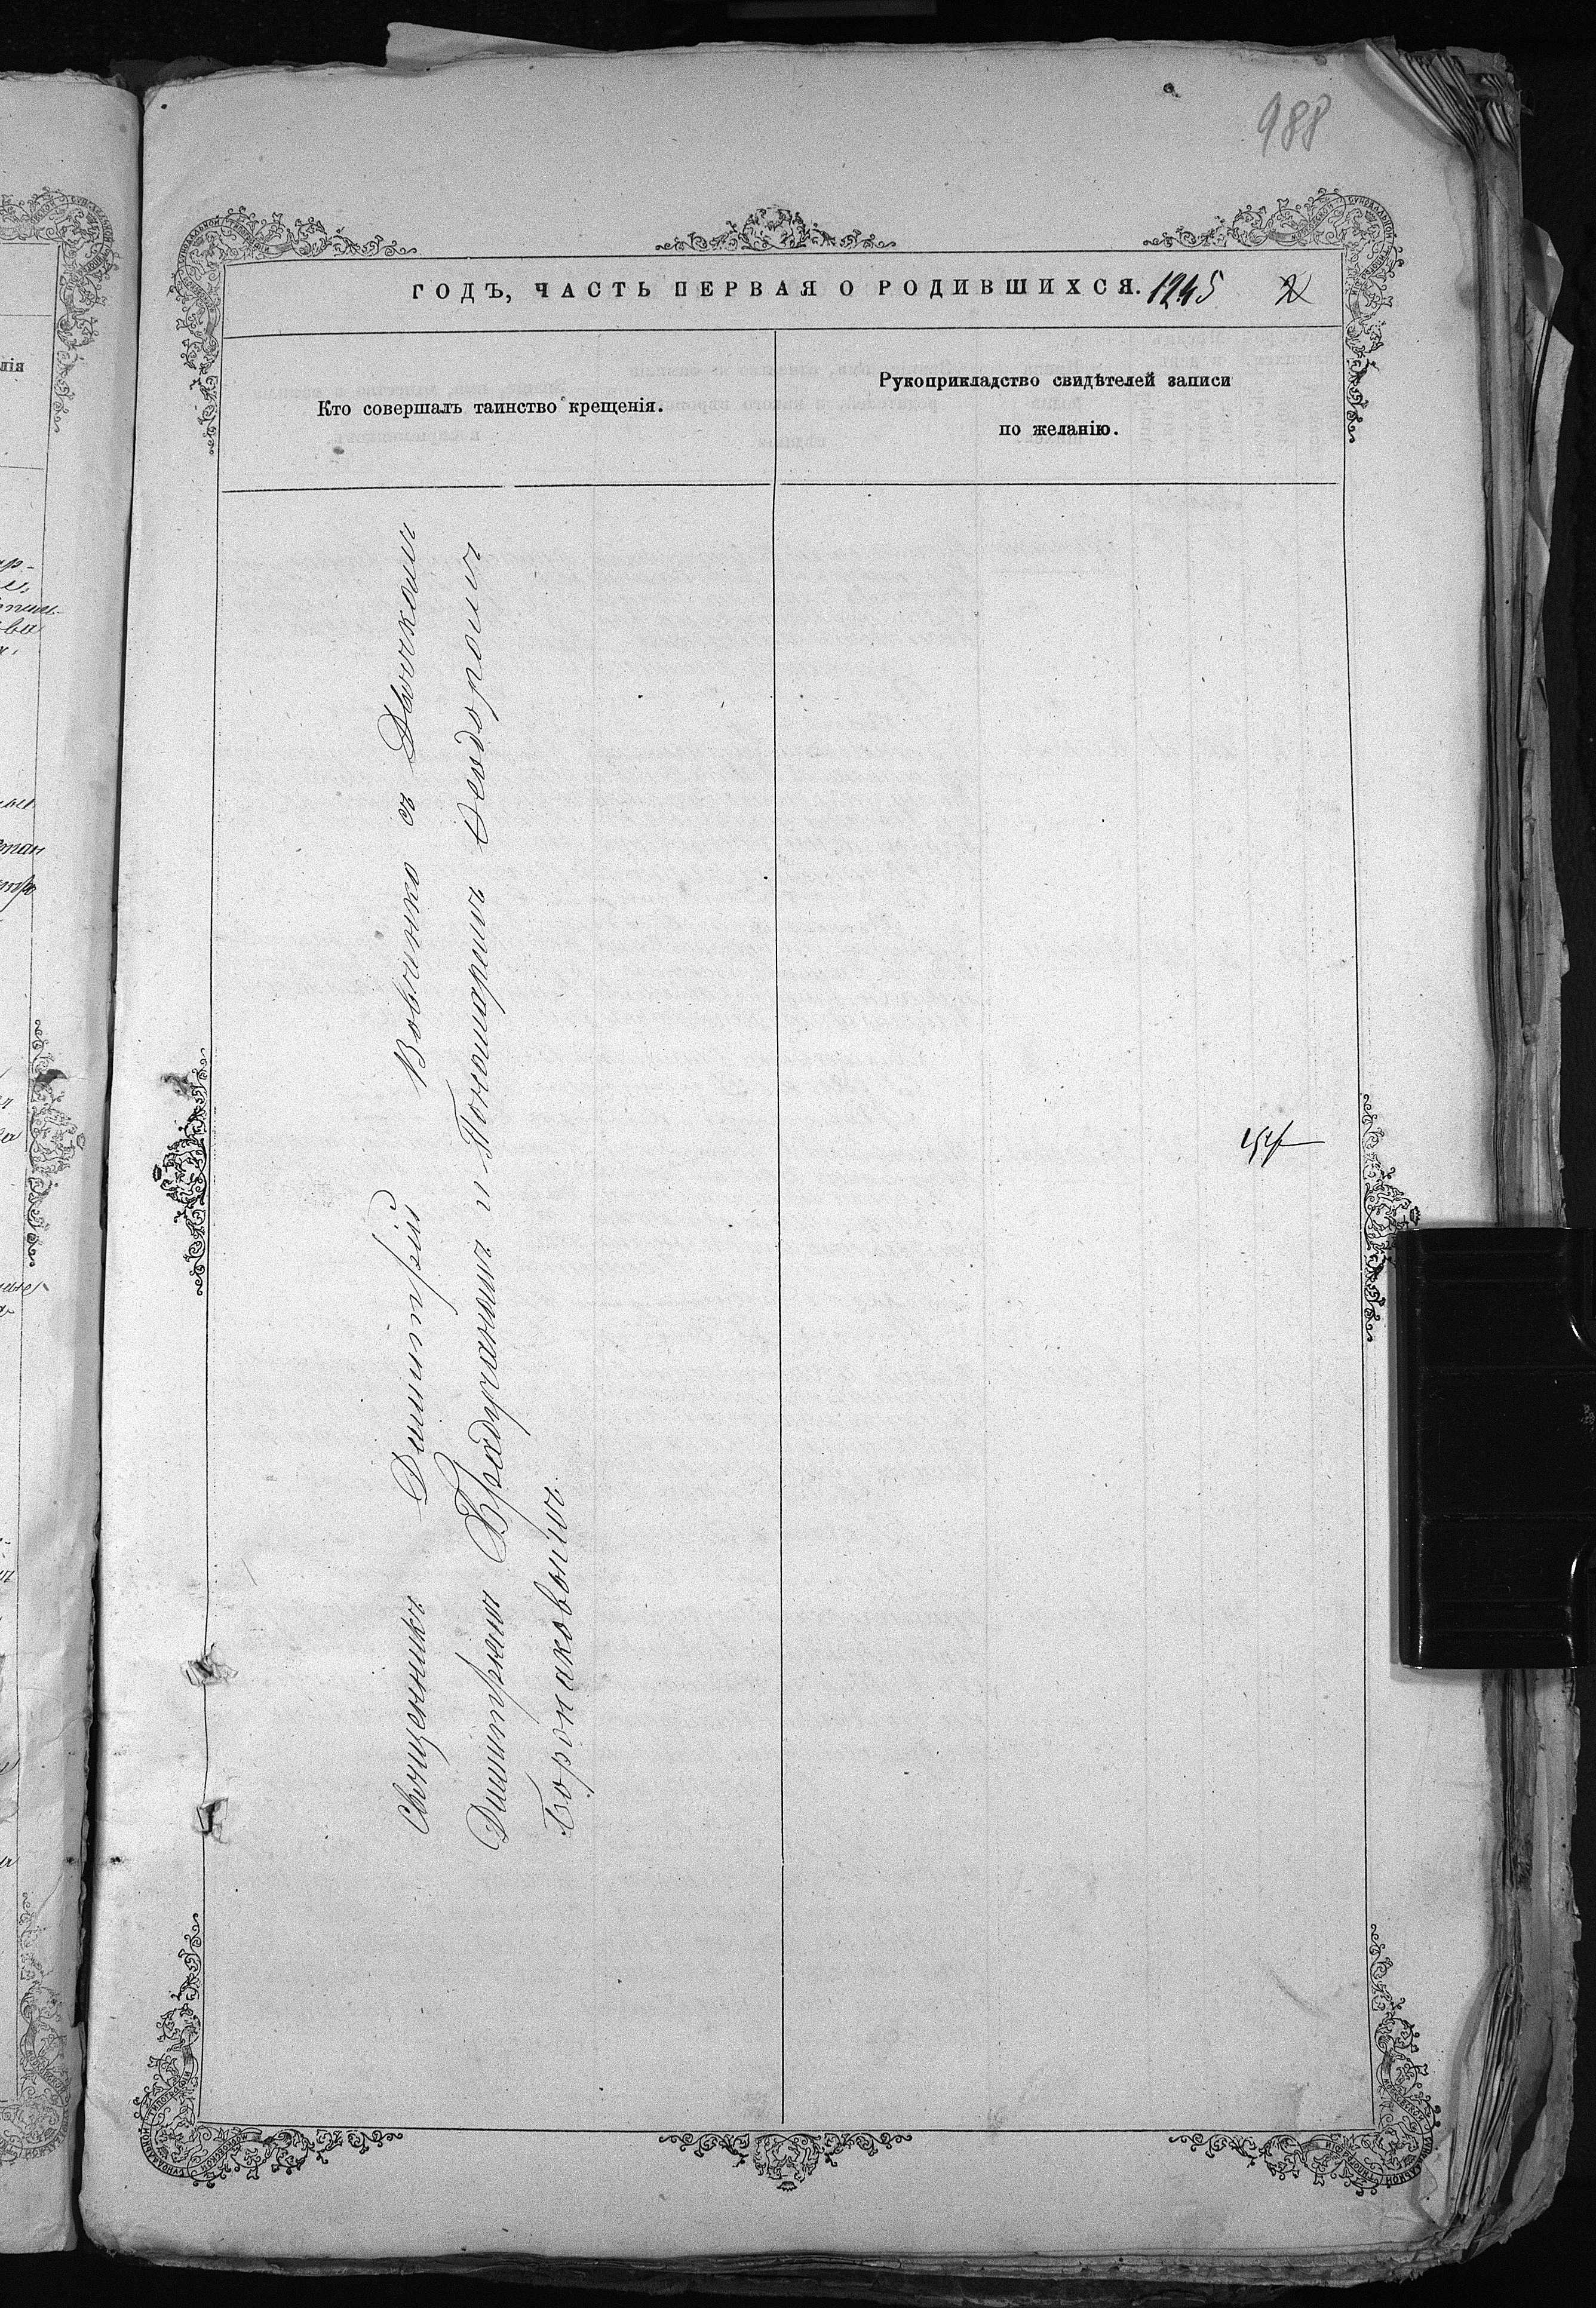 988
ГОДЪ, ЧАСТЬ ПЕРВАЯ О РОДИВШИХСЯ. 1245
Кто совершалъ таинство крещенія.
Рукоприкладство свидѣтелей записи
по желанію.
Священникъ Димитрій Вовченко съ Дьячкомъ
Димитріемъ и Пономаремъ Ѳеодоромъ